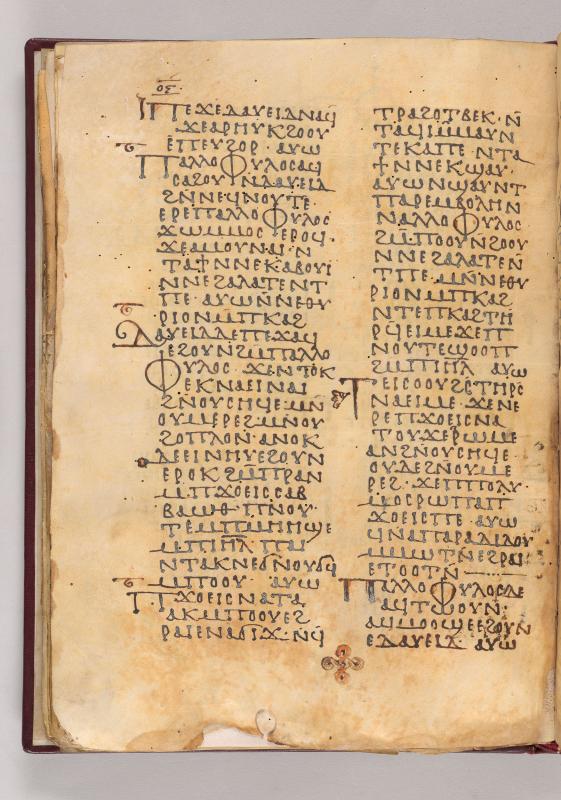 ⲟⲋ̅
ⲡⲉϫⲉⲇⲁⲩⲉⲓⲇⲛⲁϥ
ϫⲉⲁⲣⲏⲩⲕϩⲟⲟⲩ
ⲉⲡⲉⲩϩⲟⲣ· ⲁⲩⲱ
ⲡⲁⲗⲗⲟⲫⲩⲗⲟⲥⲁϥ
ⲥⲁϩⲟⲩⲛ̅ⲇⲁⲩⲉⲓⲇ
ϩⲛ̅ⲛⲉϥⲛⲟⲩⲧⲉ·
ⲉⲣⲉⲡⲁⲗⲗⲟⲫⲩⲗⲟⲥ
ϫⲱⲙⲙⲟⲥ ⲉⲣⲟϥ·
ϫⲉⲁⲙⲟⲩⲛⲁⲓ·ⲛ̅
ⲧⲁϯⲛⲛⲉⲕⲁⲃⲟⲩⲓ
ⲛⲛⲉϩⲁⲗⲁⲧⲉⲛⲧ
ⲡⲉ ⲁⲩⲱⲛ̅ⲛⲉⲑⲩ
ⲣⲓⲟⲛⲙ̅ⲡⲕⲁϩ
ⲇⲁⲩⲉⲓⲇⲇⲉⲡⲉϫⲁϥ
ⲉϩⲟⲩⲛϩⲙ̅ⲡⲁⲗⲗⲟ
ⲫⲩⲗⲟⲥ· ϫⲉⲛⲧⲟⲕ
ⲉⲕⲛⲁⲉⲓⲛⲁⲓ
ϩⲛⲟⲩⲥⲏϥⲉ·ⲙⲛ
ⲟⲩⲙⲉⲣⲉϩ·ⲙⲛ̅ⲟⲩ
ϩⲟⲡⲗⲟⲛ·ⲁⲛⲟⲕ
ⲇⲉⲉⲓⲛⲏⲩⲉϩⲟⲩⲛ
ⲉⲣⲟⲕ ϩⲙ̅ⲡⲣⲁⲛ
ⲙⲡϫⲟⲉⲓⲥⲥⲁⲃ
ⲃⲁⲱⲑ·ⲡⲛⲟⲩ
ⲧⲉⲙ̅ⲡⲙⲏⲏϣⲉ
ⲙⲡⲓⲏ̅ⲗ̅ ⲡⲁⲓ
ⲛⲧⲁⲕⲛⲉϭⲛⲟⲩϭϥ
ⲙⲡⲟⲟⲩ· ⲁⲩⲱ
ⲡϫⲟⲉⲓⲥⲛⲁⲧⲁ
ⲁⲕⲙⲡⲟⲟⲩⲉϩ
ⲣⲁⲓⲉⲛⲁϭⲓϫ·ⲛ̅ϥ
ⲧⲣⲁϩⲟⲧⲃⲉⲕ·ⲛ̅
ⲧⲁϥⲓⲙⲙⲁⲩⲛ
ⲧⲉⲕⲁⲡⲉ·ⲛⲧⲁ
ϯⲛⲛⲉⲕϣⲁⲩ·
ⲁⲩⲱⲛϣⲁⲩⲛⲧ
ⲡⲁⲣⲉⲙⲃⲟⲗⲏⲛ
ⲛⲁⲗⲗⲟⲫⲩⲗⲟⲥ
ϩⲙ̅ⲡⲟⲟⲩⲛϩⲟⲟⲩ
ⲛⲛⲉϩⲁⲗⲁⲧⲉⲛ̅
ⲧⲡⲉ·ⲙⲛ̅ⲛⲉⲑⲩ
ⲣⲓⲟⲛⲙⲡⲕⲁϩ
ⲛⲧⲉⲡⲕⲁϩⲧⲏ
ⲣϥⲉⲓⲙⲉϫⲉⲡ
ⲛⲟⲩⲧⲉϣⲟⲟⲡ
ϩⲙⲡⲓⲏ̅ⲗ̅ ⲁⲩⲱ
ⲧⲉⲓⲥⲟⲟⲩϩⲥⲧⲏⲣⲥ
ⲛⲁⲉⲓⲙⲉ·ϫⲉⲛⲉ
ⲣⲉⲡϫⲟⲉⲓⲥⲛⲁ
ⲧⲟⲩϫⲉⲣⲱⲙⲉ
ⲁⲛϩⲛⲟⲩⲥⲏϥⲉ·
ⲟⲩⲇⲉϩⲛ̅ⲟⲩⲙⲉ
ⲣⲉϩ·ϫⲉⲡⲡⲟⲗⲩ
ⲙⲟⲥⲣⲱⲡⲁⲡ
ϫⲟⲉⲓⲥⲡⲉ· ⲁⲩⲱ
ϥⲛⲁⲡⲁⲣⲁⲇⲓⲇⲟⲩ
ⲙⲙⲱⲧⲛⲉϩⲣⲁⲓ
ⲉⲧⲟⲟⲧⲛ̅
ⲡⲁⲗⲗⲟⲫⲩⲗⲟⲥⲇⲉ
ⲁϥⲧⲱⲟⲩⲛ·
ⲁϥⲙⲟⲟϣⲉⲉϩⲟⲩⲛ
ⲉⲇⲁⲩⲉⲓⲇ· ⲁⲩⲱ